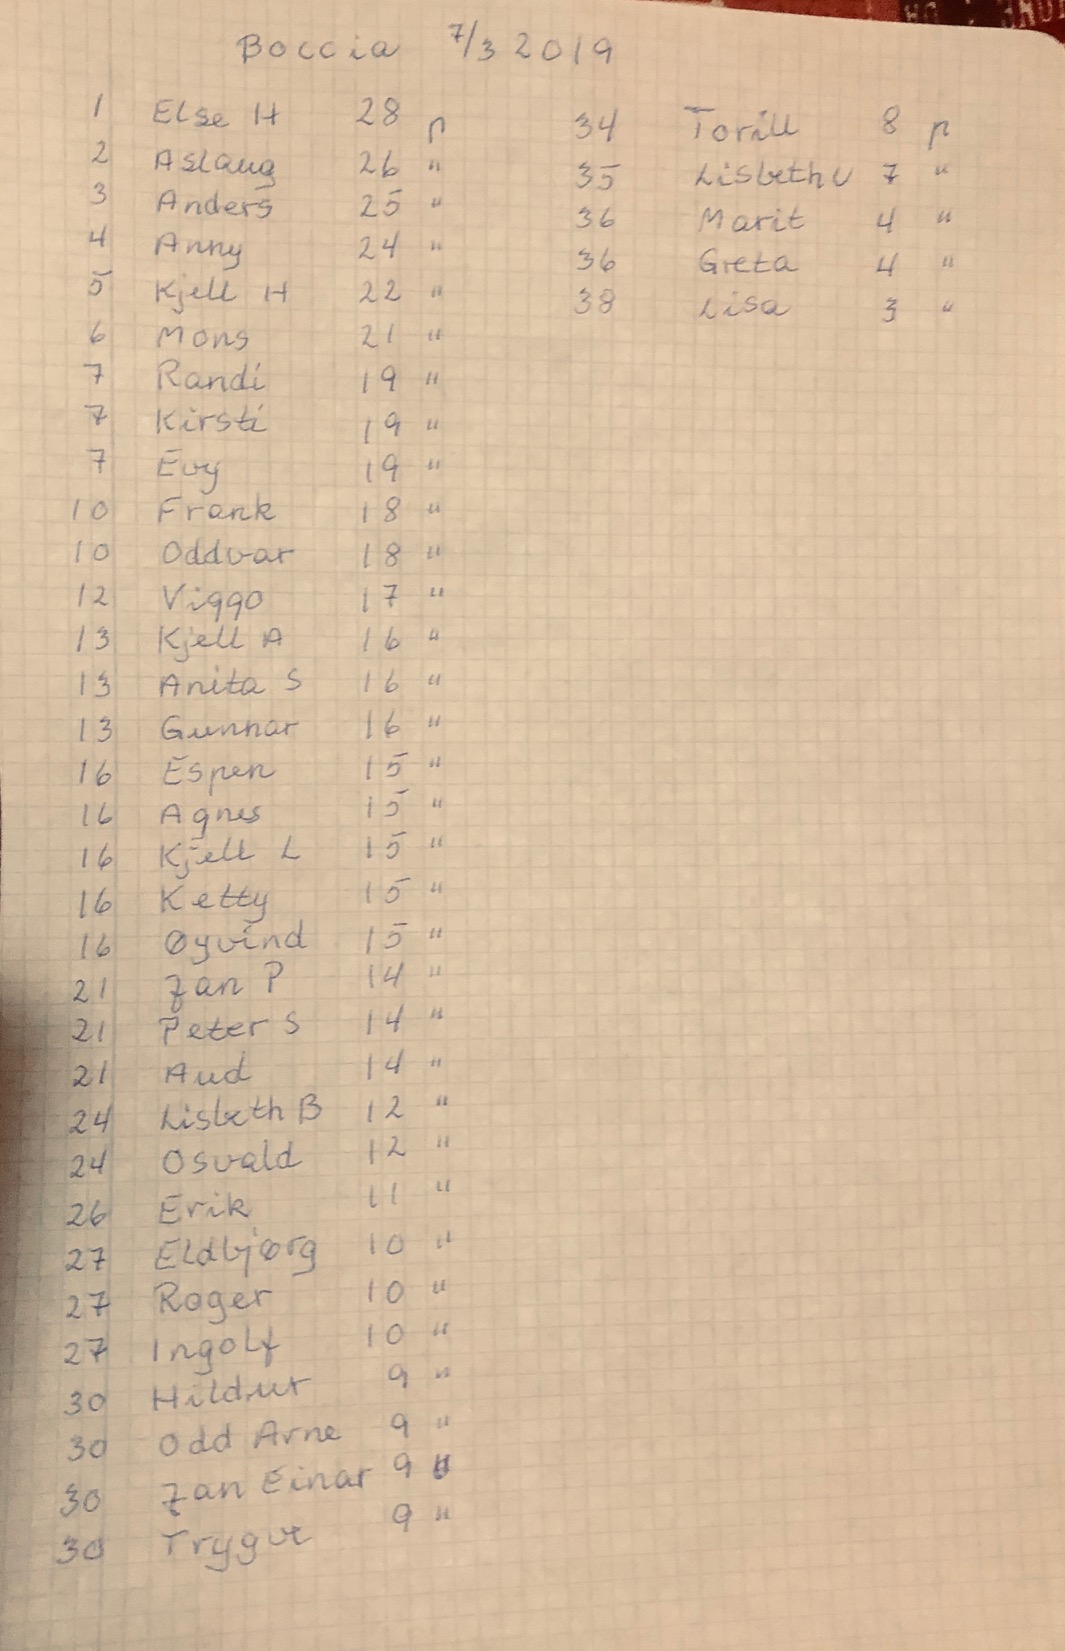 Boccia 7/3 2019
1 Else H 28 p
2 Aslaug 26 "
3 Anders 25 "
4 Anny 24 "
5 Kjell H 22 "
6 Mons 21 "
7 Randi 19 "
7 Kirsti 19 "
7 Evy 19 "
10 Frank 18 "
10 Oddvar 18 "
12 Viggo 17 "
13 Kjell A 16 "
13 Anita S 16 "
13 Gunnar 16 "
16 Espen 15 "
16 Agnes 15 "
16 Kjell L 15 "
16 Ketty 15 "
16 Øyvind 15 "
21 Jan P 14 "
21 Peter S 14 "
21 Aud 14 "
24 Lisbeth B 12 "
24 Osvald 12 "
26 Erik 11 "
27 Eldbjørg 10 "
27 Roger 10 "
27 Ingolf 10 "
30 Hildur 9 "
30 Odd Arne 9 "
30 Jan Einar 9 "
30 Trygve 9 "
34 Torill 8 p
35 Lisbeth U 7 "
36 Marit 4 "
36 Greta 4 "
38 Lisa 3 "